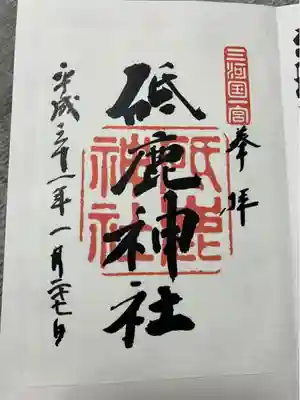 三河国一宮
奉拝
砥鹿神社
砥鹿神社
平成三十一年一月二十七日